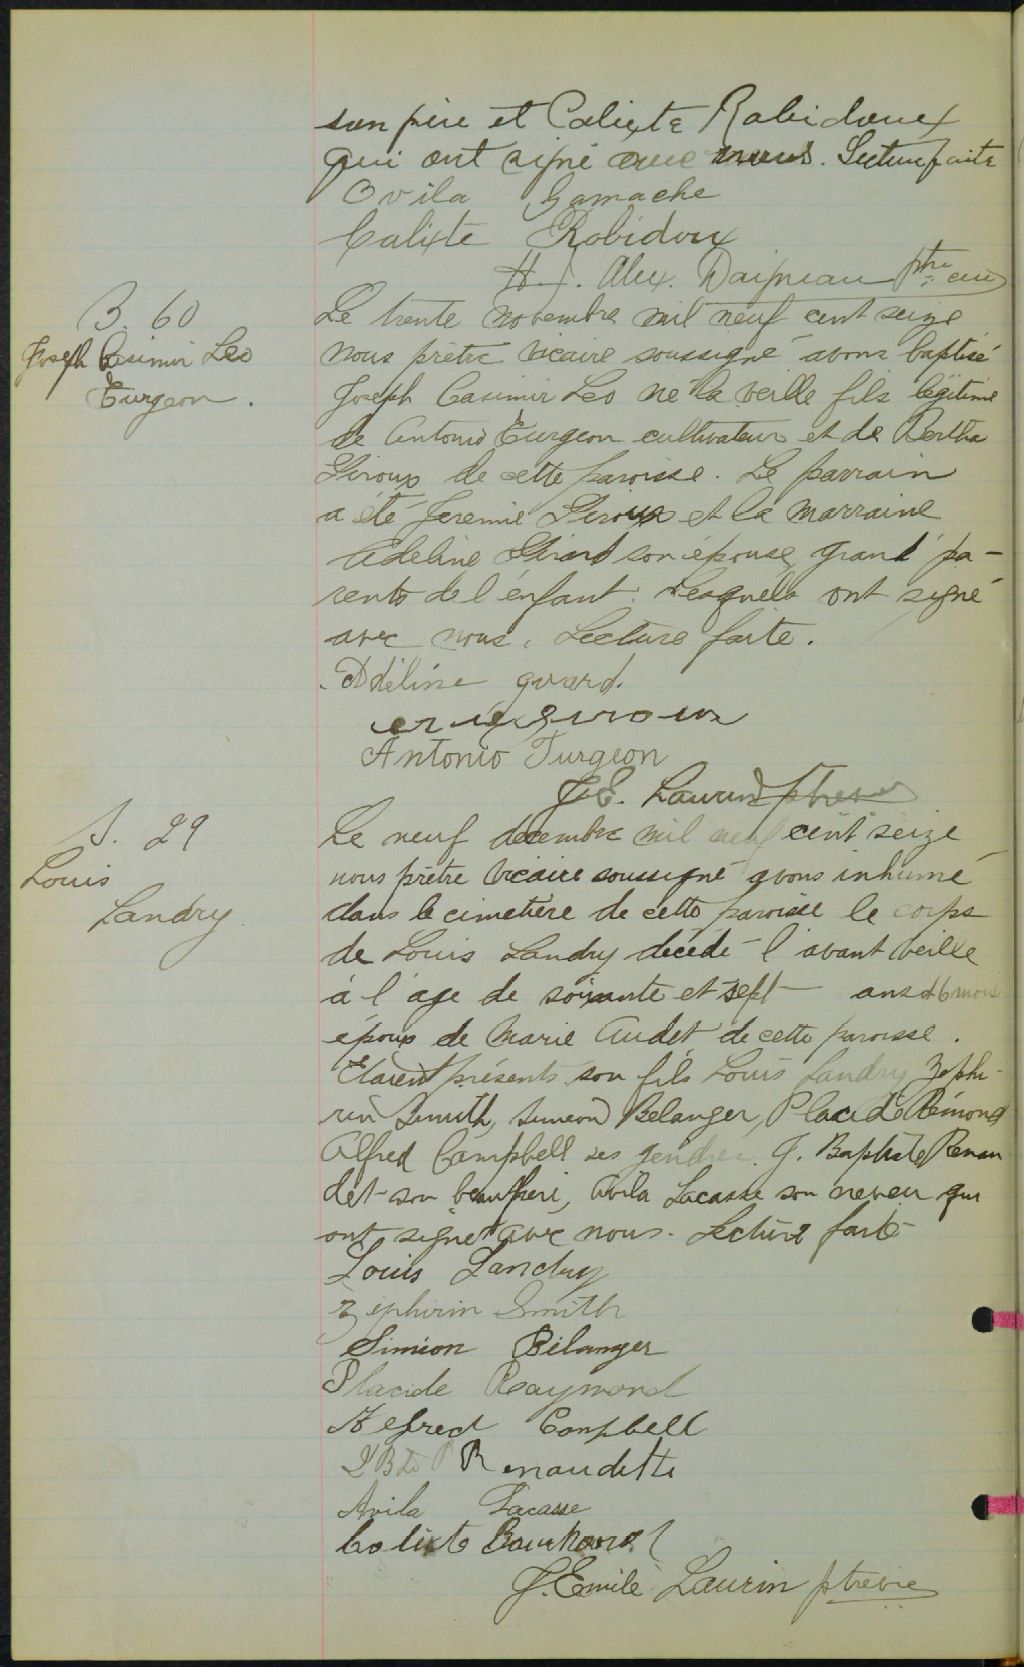 son père et Calixte Robidoux
qui ont signé avec nous. Lecture faite
Ovila Gamache
Calixte Robidoux
H. J. Alex. Daigneau ptre curé
B. 60
Joseph Casimir Leo
Turgeon.
Le trente novembre mil neuf cent seize
nous prêtre vicaire soussigné avons baptisé
Joseph Casimir Leo né la veille fils légitime
de Antonio Turgeon cultivateur et de Bertha
Giroux de cette paroisse. Le parrain
a été Jeremie Giroux et la marraine
Adeline Girard son épouse, grand' pa-
rents de l'enfant. Lesquels ont signé
avec nous. Lecture faite.
Adéline girard.
giroux
Antonio Turgeon
J.E. Laurin ptre
S. 29
Louis
Landry
Le neuf décembre mil neuf cent seize
nous prêtre vicaire soussigné avons inhumé
dans le cimetière de cette paroisse le corps
de Louis Landry décédé l'avant veille
à l'age de soixante et sept ans et 6 mois
époux de Marie Audet de cette paroisse.
Etaient présents son fils Louis Landry Zephi-
rin Smith, Simeon Belanger, Placide Rémond
Alfred Campbell ses gendres. J. Baptiste Renau
det son beau frère, Avila Lacasse son neveu qui
ont signé avec nous. Lecture faite
Louis Landry
Zéphirin Smith
Simion Bélanger
Placide Raymond
Alfred Campbell
J Bte Renaudette
Avila Lacasse
Calixte
J. Emile Laurin ptre vic